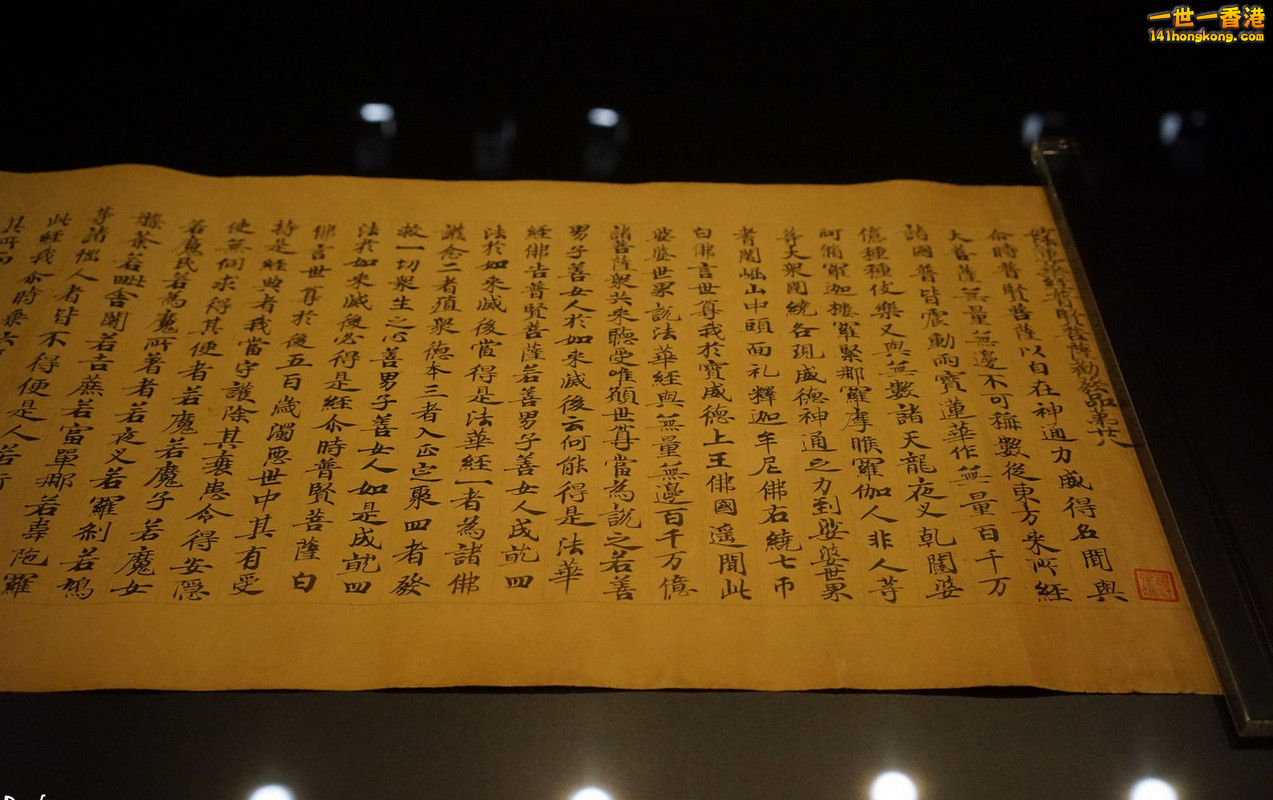 一世一香港
141hongkong.com
妙法蓮華經普賢菩薩勸發品第廿八
尒時普賢菩薩以自在神通力威得名聞與
大菩薩無量無邊不可稱數從東方来所經
諸國普皆震動雨寶蓮華作無量百千万
億種種伎樂又與無數諸天龍夜叉乹闥婆
阿脩羅迦樓羅緊那羅摩睺羅伽人非人等
等大衆圍繞各現威德神通之力到娑婆世界
耆闍崛山中頭面礼釋迦牟尼佛右繞七帀
白佛言世尊我於寶威德上王佛國遥聞此
娑婆世界說法華經與無量無邊百千万億
諸菩薩衆共来聽受唯願世尊當為說之若善
男子善女人於如来滅後云何能得是法華
經佛告普賢菩薩若善男子善女人成就四
法於如来滅後當得是法華經一者為諸佛
護念二者殖衆德本三者入正定聚四者發
救一切衆生之心善男子善女人如是成就四
法於如来滅後必得是經尒時普賢菩薩白
佛言世尊於後五百歲濁惡世中其有受
持是經典者我當守護除其衰患令得安隱
使無伺求得其便者若魔若魔子若魔女
若魔民若為魔所著者若夜叉若羅刹若鳩
槃荼若毗舍闍若吉蔗若富單那若韋陁羅
等諸惱人者皆不得便是人若行
此經我尒時乘六